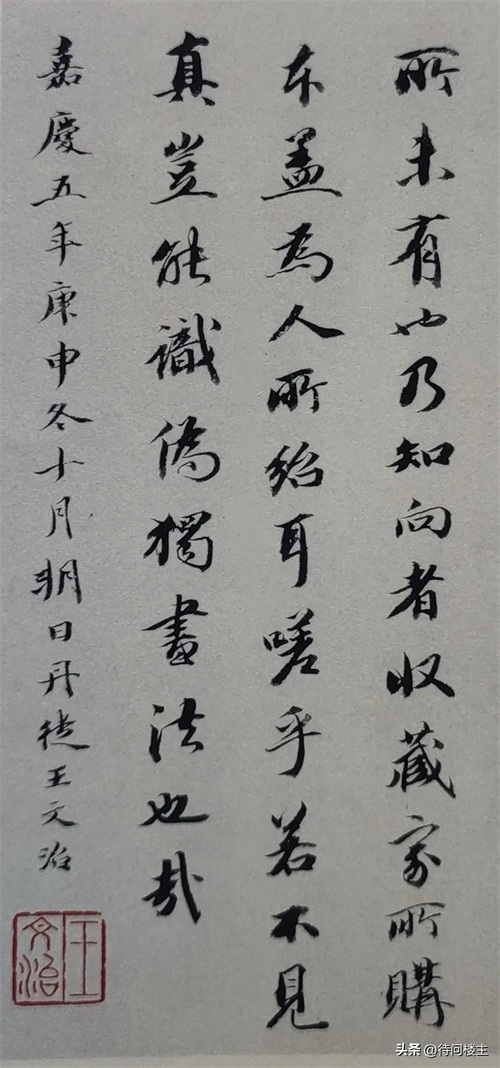 所未有也乃知向者收藏家所購
本盖為人所紿耳嗟乎若不見
真豈能識偽獨畫法也哉
嘉慶五年庚申冬十月朔日丹徒王文治
王文治
头条 @待问楼主